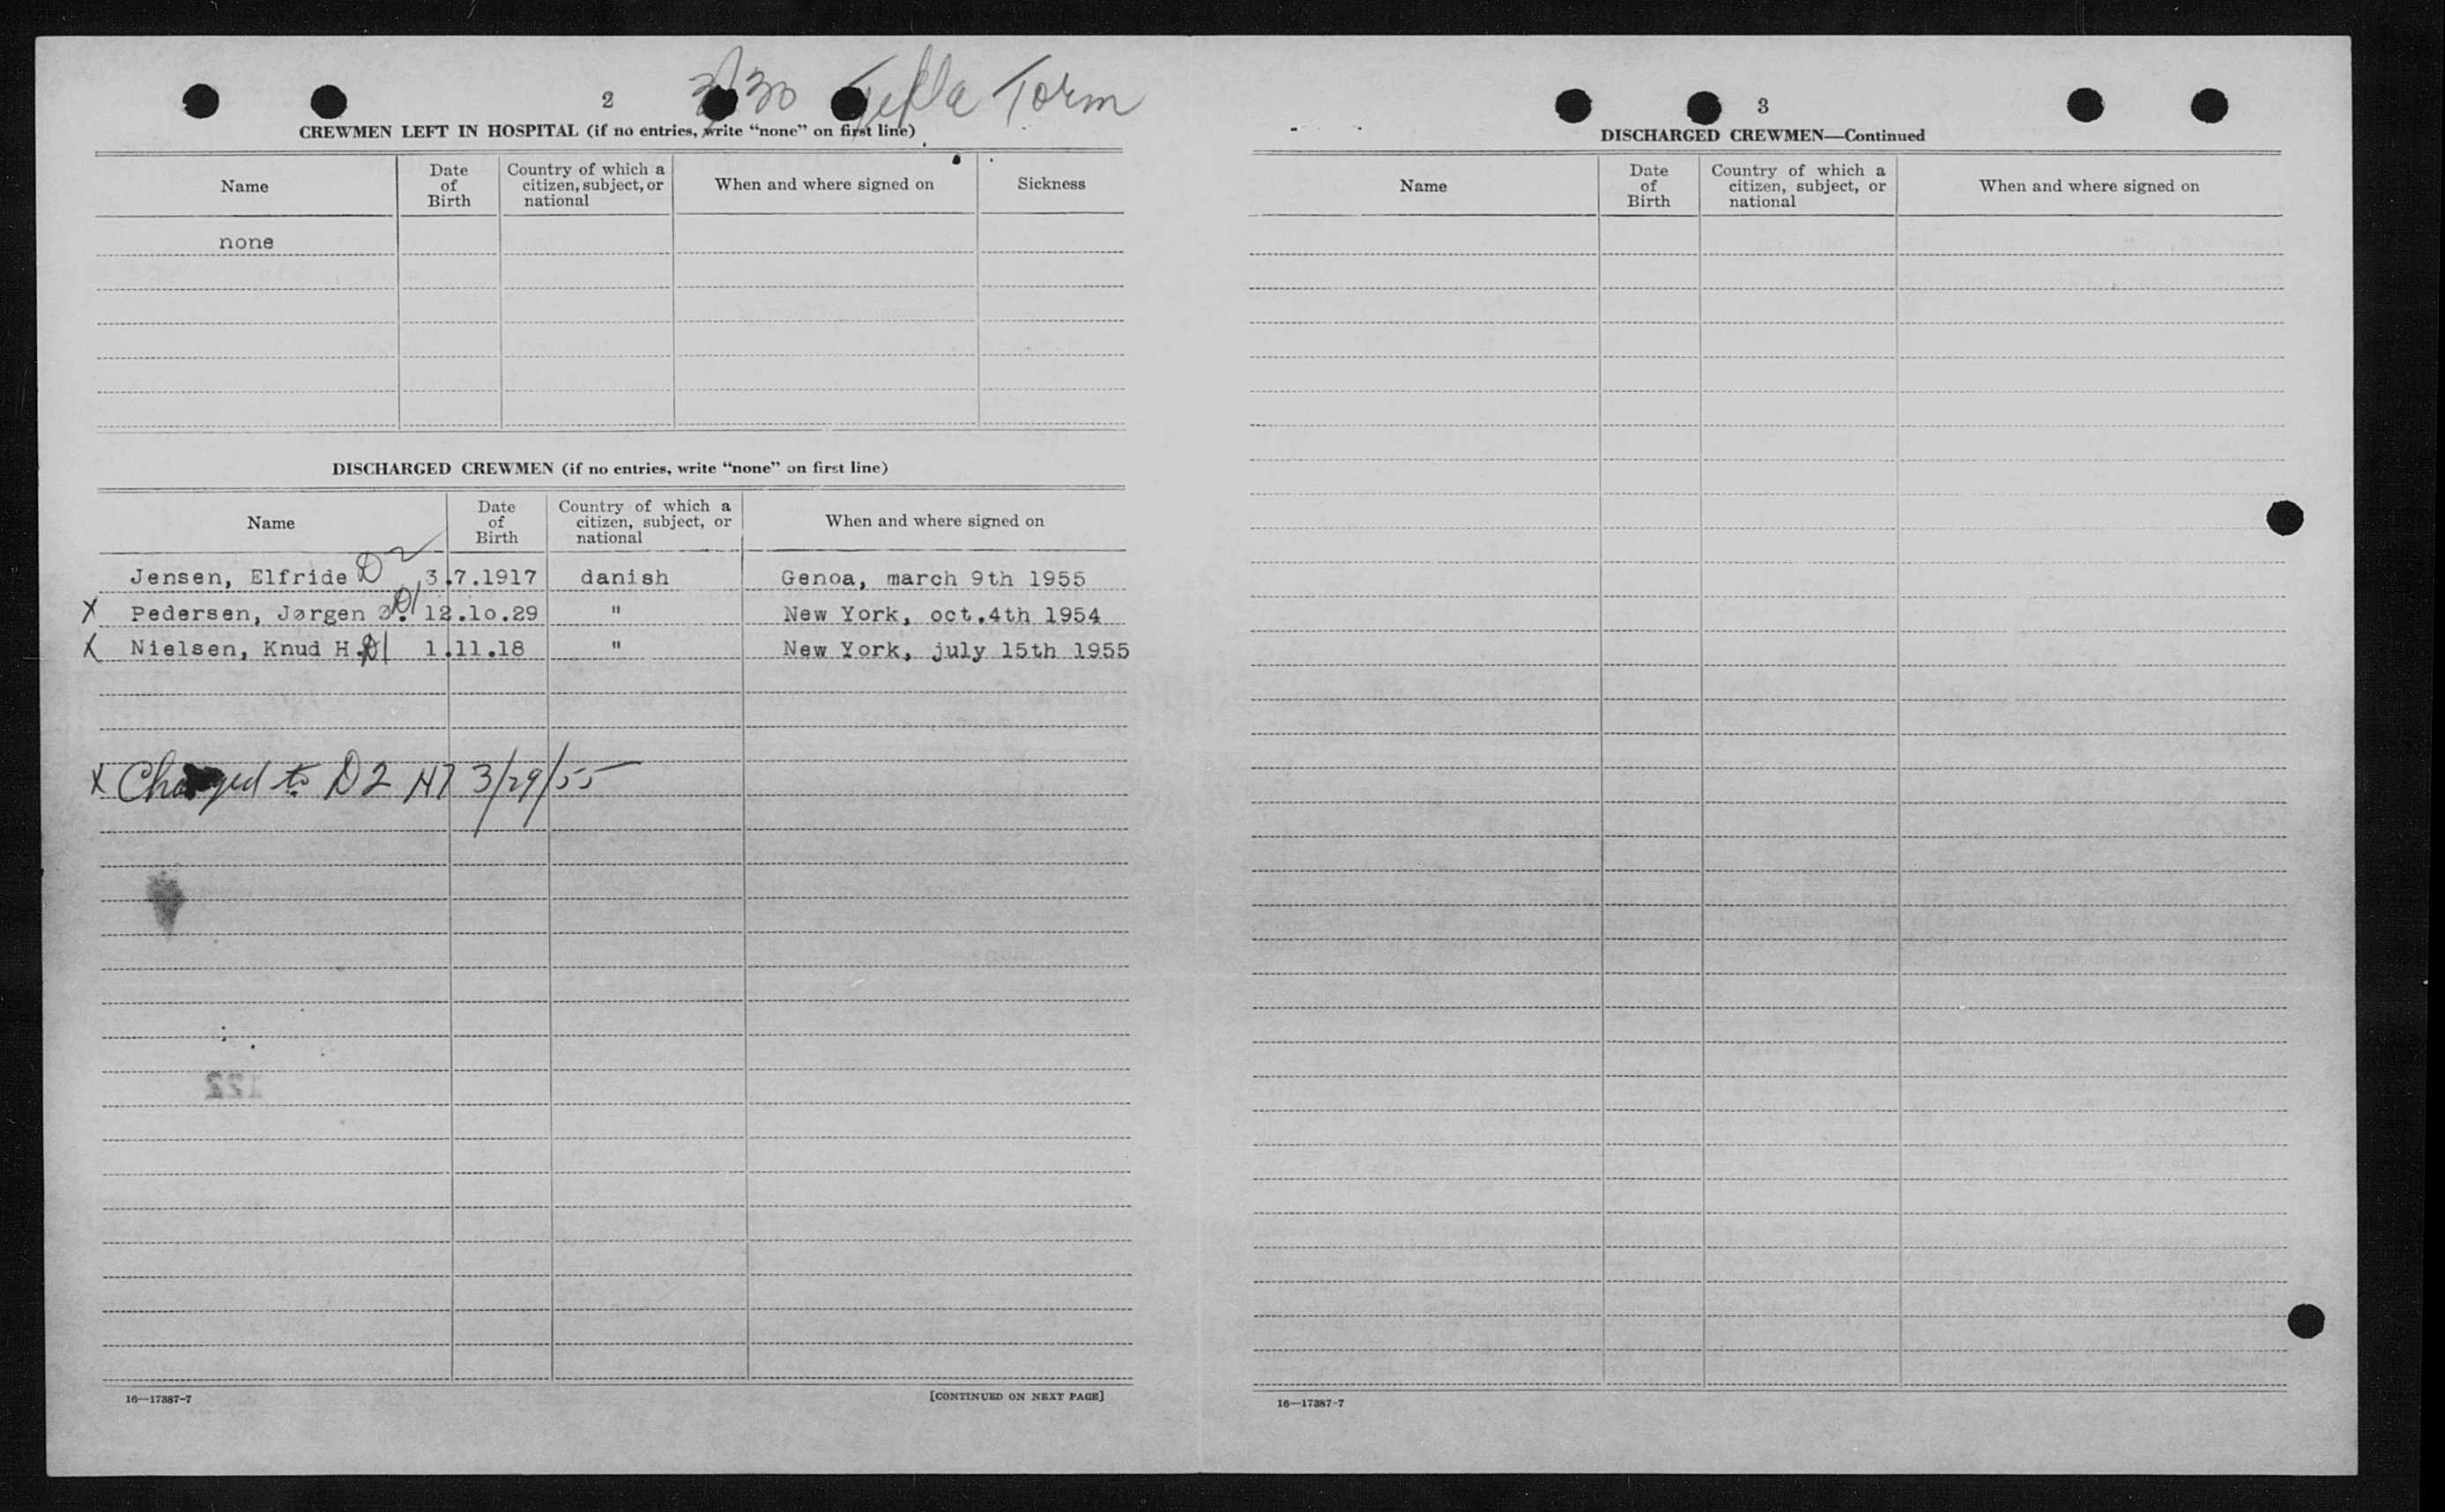 2 3/30 Tekla Torm
CREWMEN LEFT IN HOSPITAL (if no entries, write "none" on first line)
Name Date of Birth Country of which a citizen, subject, or national When and where signed on Sickness
none
DISCHARGED CREWMEN (if no entries, write "none" on first line)
Name Date of Birth Country of which a citizen, subject, or national When and where signed on
Jensen, Elfride D2 3.7.1917 danish Genoa, march 9th 1955
X Pedersen, Jørgen Ø. D1 12.10.29 " New York, oct.4th 1954
X Nielsen, Knud H. D1 1.11.18 " New York, july 15th 1955
X Changed to D2 3/29/55
122
16—17387-7 [CONTINUED ON NEXT PAGE]
3
DISCHARGED CREWMEN—Continued
Name Date of Birth Country of which a citizen, subject, or national When and where signed on
16—17387-7